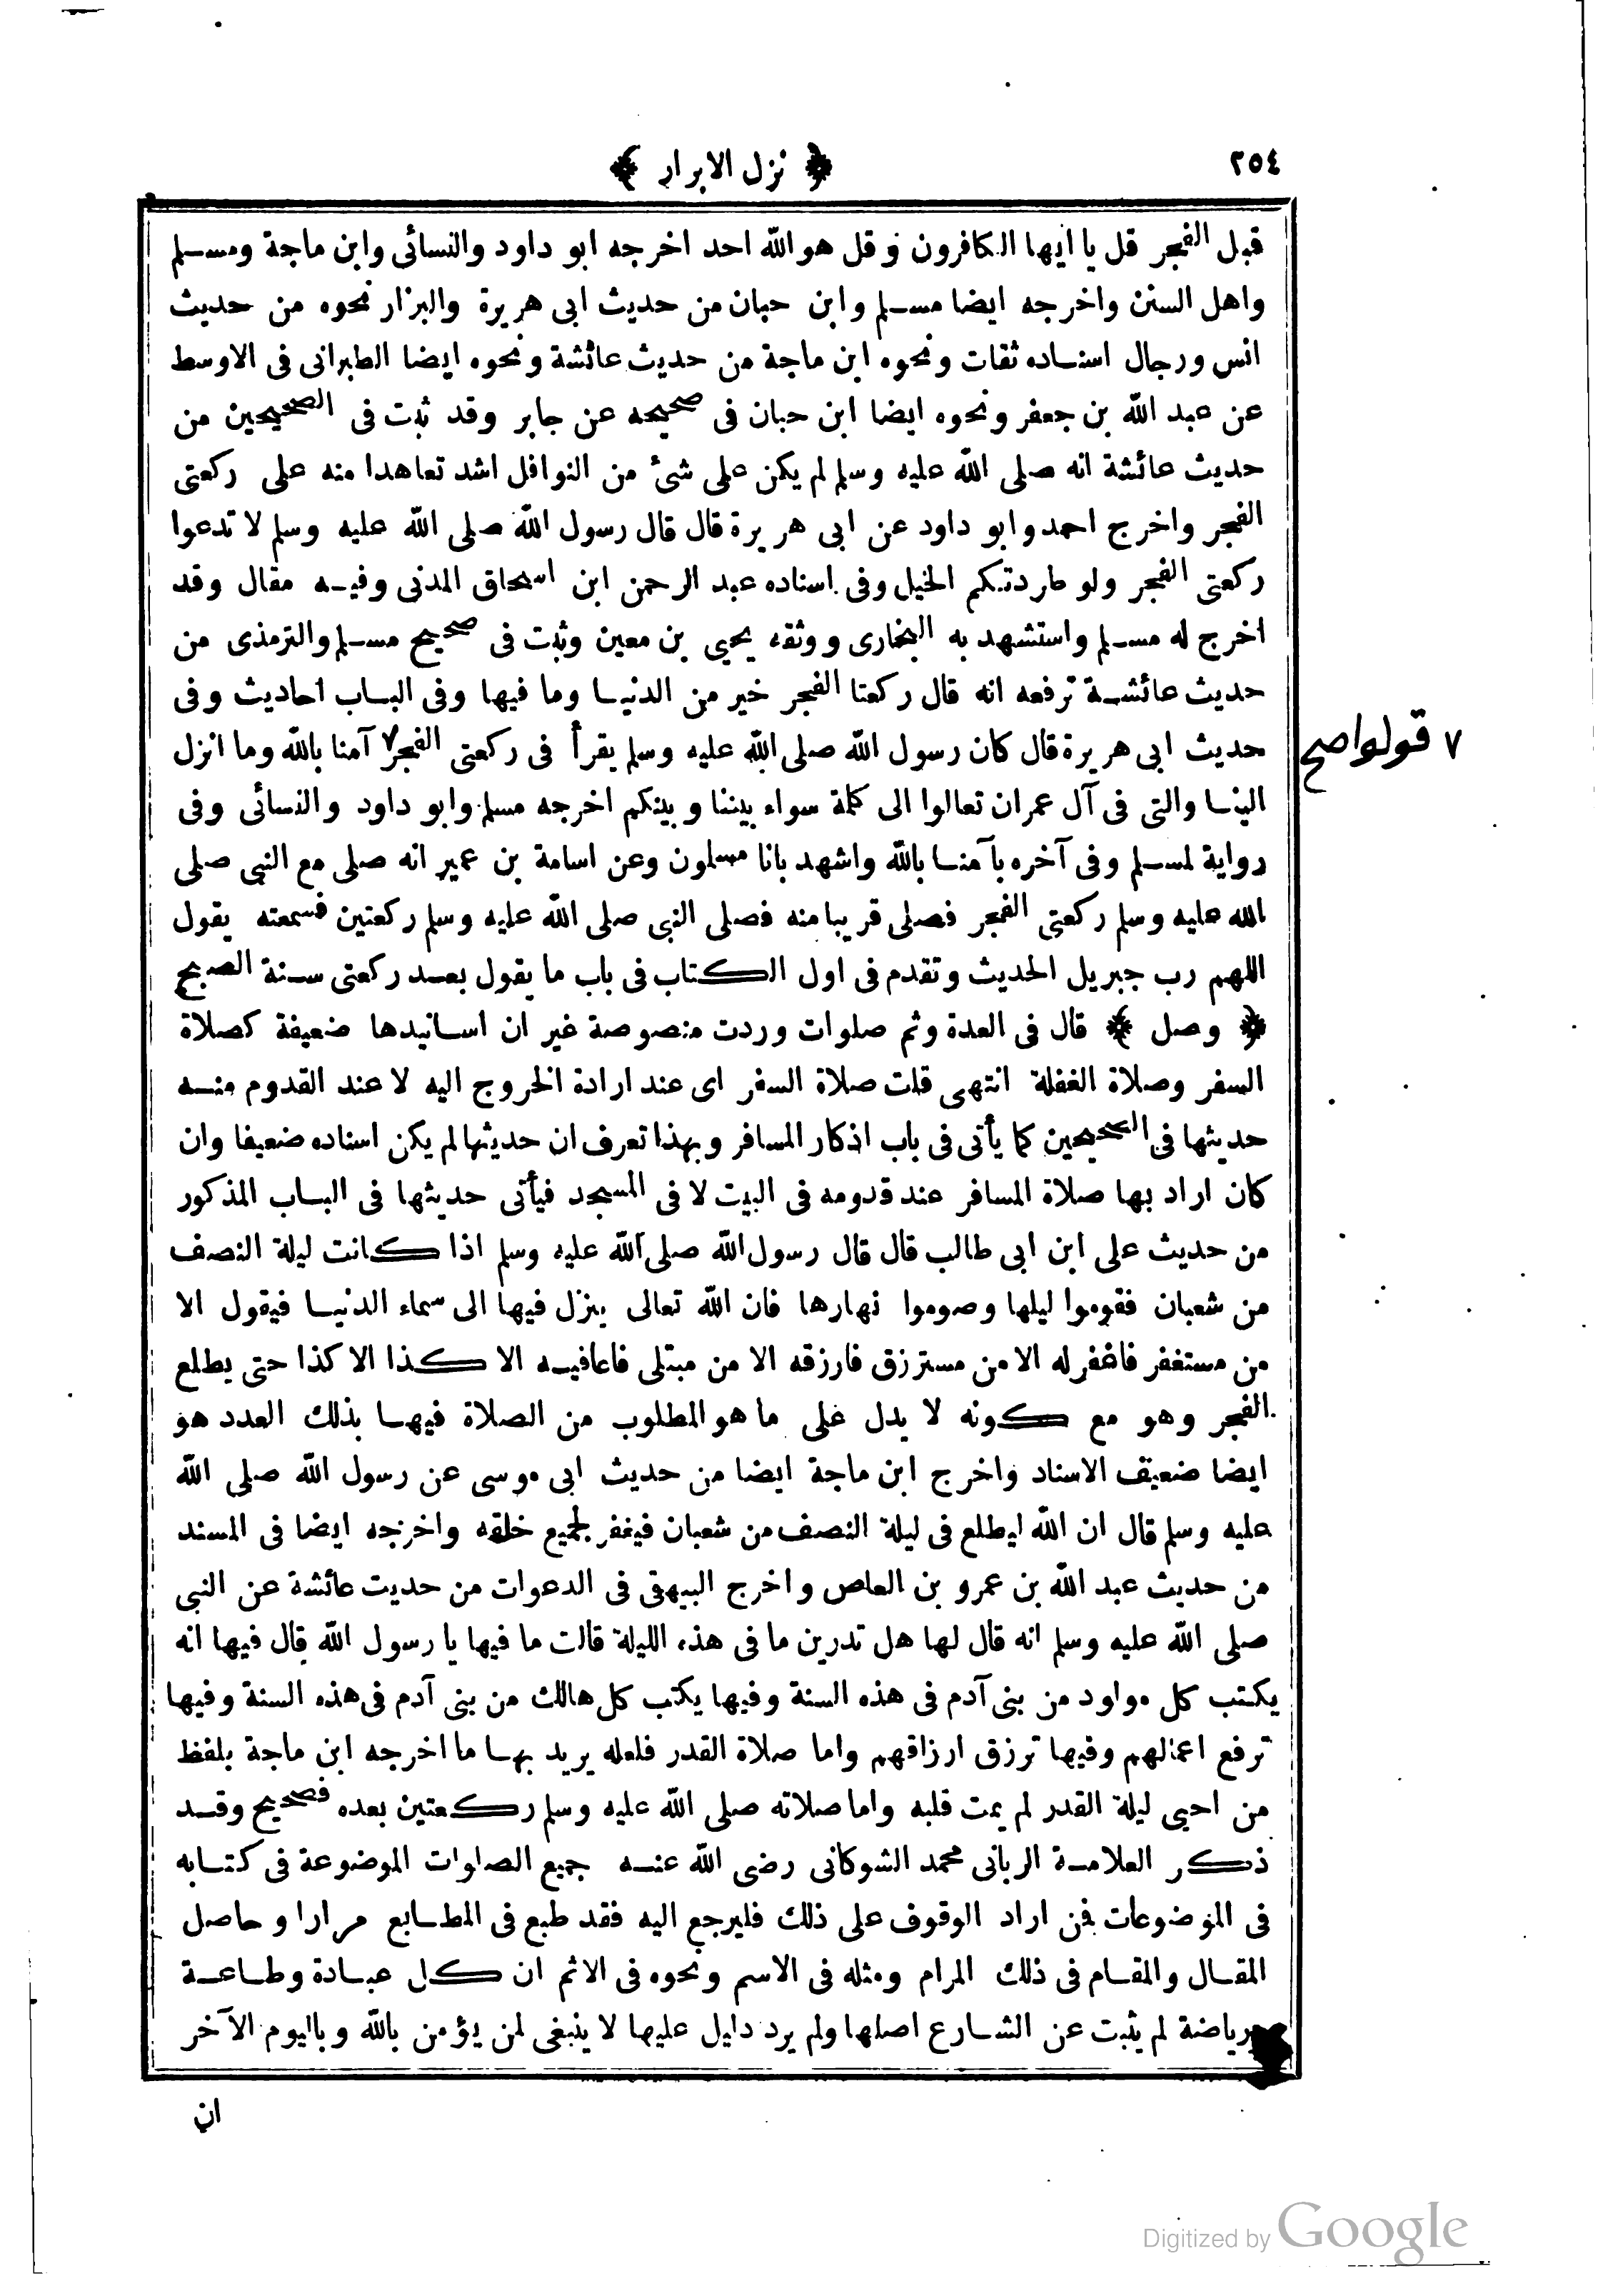 ٢٥٤
﴿ نزل الابرار ﴾
قبل الفجر قل يا ايها الكافرون وقل هو الله احد اخرجه ابو داود والنسائى وابن ماجة ومسلم
واهل السنن واخرجه ايضا مسلم وابن حبان من حديث ابى هريرة والبزار نحوه من حديث
انس ورجال اسناده ثقات ونحوه ابن ماجة من حديث عائشة ونحوه ايضا الطبرانى فى الاوسط
عن عبد الله بن جعفر ونحوه ايضا ابن حبان فى صحيحه عن جابر وقد ثبت فى الصحيحين من
حديث عائشة انه صلى الله عليه وسلم لم يكن على شئ من النوافل اشد تعاهدا منه على ركعتى
الفجر واخرج احمد وابو داود عن ابى هريرة قال قال رسول الله صلى الله عليه وسلم لا تدعوا
ركعتى الفجر ولو طاردتكم الخيل وفى اسناده عبد الرحمن ابن اسحاق المدنى وفيه مقال وقد
اخرج له مسلم واستشهد به البخارى ووثقه يحيى بن معين وثبت فى صحيح مسلم والترمذى من
حديث عائشة ترفعه انه قال ركعتا الفجر خير من الدنيا وما فيها وفى الباب احاديث وفى
حديث ابى هريرة قال كان رسول الله صلى الله عليه وسلم يقرأ فى ركعتى الفجر٧ آمنا بالله وما انزل
٧ قولوا صح
الينا والتى فى آل عمران تعالوا الى كلمة سواء بيننا وبينكم اخرجه مسلم وابو داود والنسائى وفى
رواية لمسلم وفى آخره بآمنا بالله واشهد بانا مسلمون وعن اسامة بن عمير انه صلى مع النبى صلى
الله عليه وسلم ركعتى الفجر فصلى قريبا منه فصلى النبى صلى الله عليه وسلم ركعتين فسمعته يقول
اللهم رب جبريل الحديث وتقدم فى اول الكتاب فى باب ما يقول بعد ركعتى سنة الصبح
﴿ وصل ﴾ قال فى العدة وثم صلوات وردت منصوصة غير ان اسانيدها ضعيفة كصلاة
السفر وصلاة الغفلة انتهى قلت صلاة السفر اى عند ارادة الخروج اليه لا عند القدوم منه
حديثها فى الصحيحين كما يأتى فى باب اذكار المسافر وبهذا تعرف ان حديثها لم يكن اسناده ضعيفا وان
كان اراد بها صلاة المسافر عند قدومه فى البيت لا فى المسجد فيأتى حديثها فى الباب المذكور
من حديث على ابن ابى طالب قال قال رسول الله صلى الله عليه وسلم اذا كانت ليلة النصف
من شعبان فقوموا ليلها وصوموا نهارها فان الله تعالى ينزل فيها الى سماء الدنيا فيقول الا
من مستغفر فاغفر له الا من مسترزق فارزقه الا من مبتلى فاعافيه الا كذا الا كذا حتى يطلع
الفجر وهو مع كونه لا يدل على ما هو المطلوب من الصلاة فيها بذلك العدد هو
ايضا ضعيف الاسناد واخرج ابن ماجة ايضا من حديث ابى موسى عن رسول الله صلى الله
عليه وسلم قال ان الله ليطلع فى ليلة النصف من شعبان فيغفر لجميع خلقه واخرجه ايضا فى المسند
من حديث عبد الله بن عمرو بن العاص واخرج البيهقى فى الدعوات من حديت عائشة عن النبى
صلى الله عليه وسلم انه قال لها هل تدرين ما فى هذه الليلة قالت ما فيها يا رسول الله قال فيها انه
يكتب كل مولود من بنى آدم فى هذه السنة وفيها يكتب كل هالك من بنى آدم فى هذه السنة وفيها
ترفع اعمالهم وفيها ترزق ارزاقهم واما صلاة القدر فلعله يريد بها ما اخرجه ابن ماجة بلفظ
من احيى ليلة القدر لم يمت قلبه واما صلاته صلى الله عليه وسلم ركعتين بعده فصحيح وقد
ذكر العلامة الربانى محمد الشوكانى رضى الله عنه جميع الصلوات الموضوعة فى كتابه
فى الموضوعات فمن اراد الوقوف على ذلك فليرجع اليه فقد طبع فى المطابع مرارا وحاصل
المقال والمقام فى ذلك المرام ومثله فى الاسم ونحوه فى الاثم ان كل عبادة وطاعة
ورياضة لم يثبت عن الشارع اصلها ولم يرد دليل عليها لا ينبغى لمن يؤمن بالله وباليوم الآخر
ان
Digitized by Google